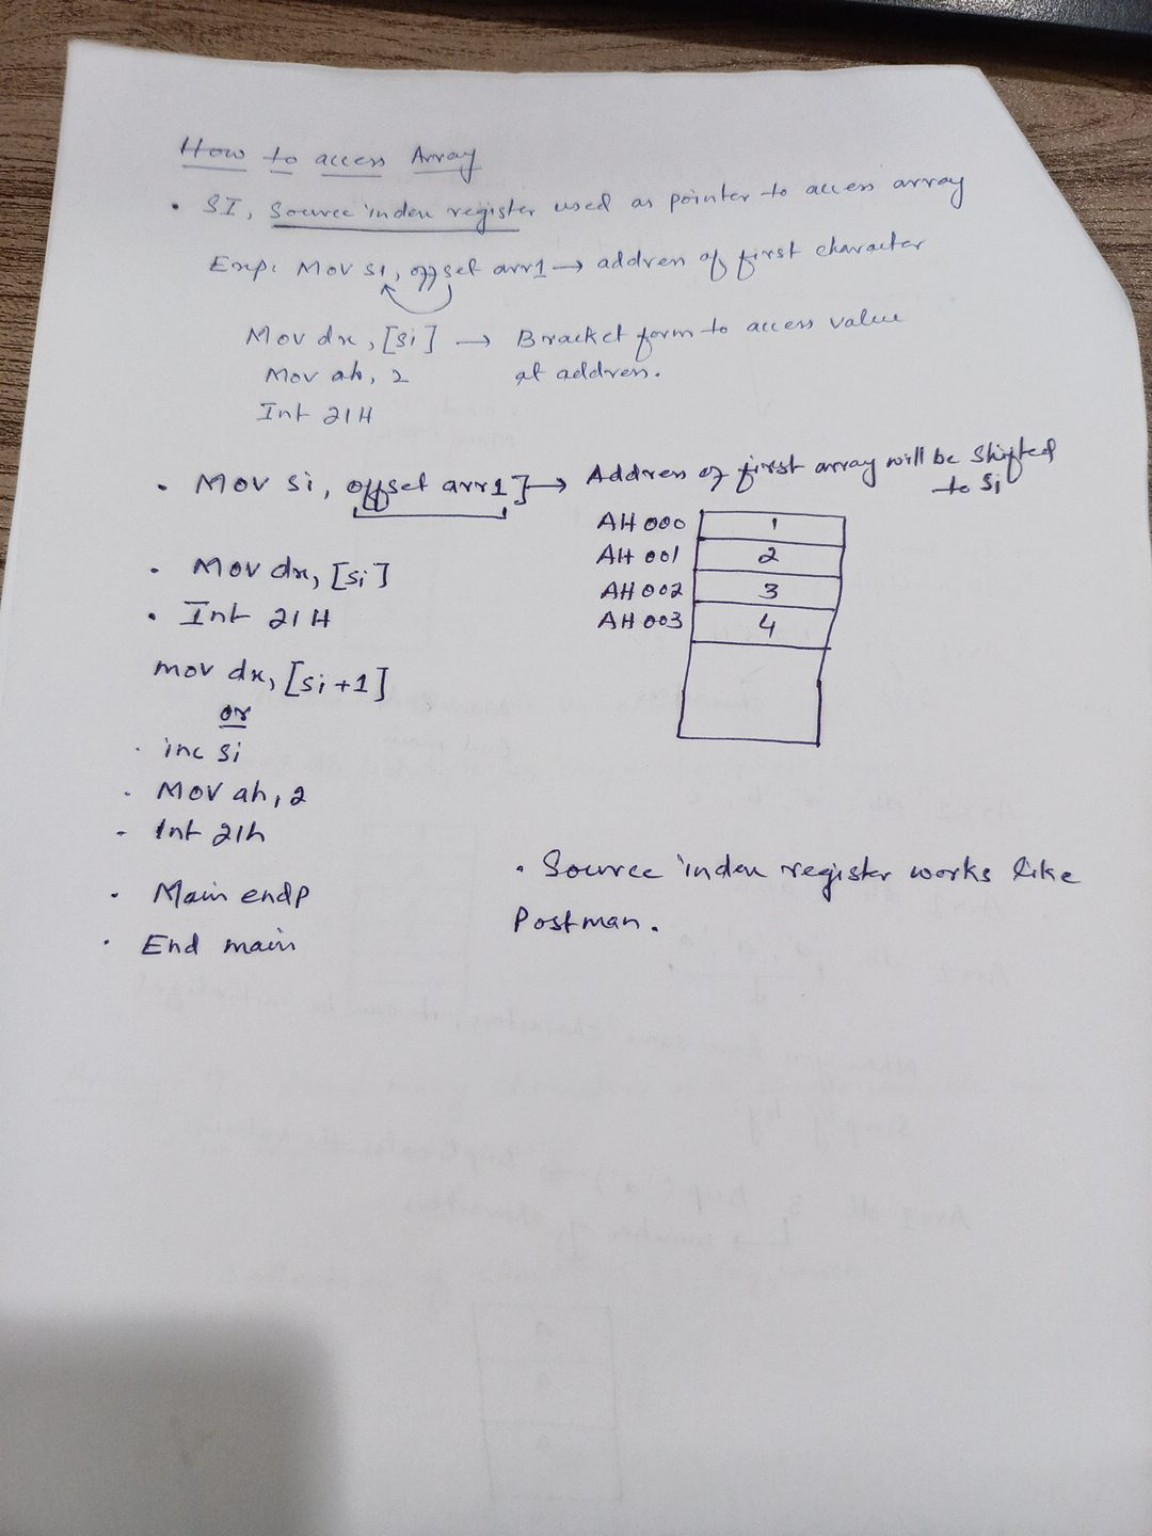 How to access Array
• SI, Source index register used as pointer to access array
Exp: Mov si, offset arr1 → address of first character
Mov dx, [si] → Bracket form to access value
at address.
Mov ah, 2
Int 21H
• Mov si, offset arr1] → Address of first array will be shifted
to si
AH000 1
AH001 2
AH002 3
AH003 4
• Mov dx, [si]
• Int 21H
mov dx, [si+1]
or
• inc si
• Mov ah, 2
• Int 21h
• Main endp
• End main
• Source index register works like
Postman.